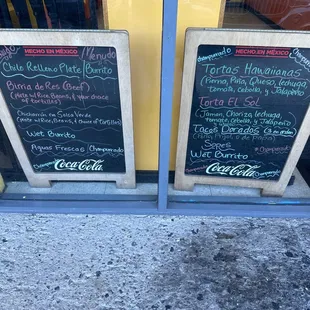 HECHO EN MÉXICO
Menudo
Chile Relleno Plate
Burrito
Birria de Res (Beef)
(Plate of Rice, Beans, & your choice
of tortillas)
Chicharrón en Salsa Verde
Wet Burrito
Aguas Frescas
Champurrado
Coca-Cola
Champurrado
HECHO EN MÉXICO
Tortas Hawaiianas
Pierna, Piña, Queso, lechuga
Tomate, Cebolla, y Jalapeño
Torta El Sol
Jamon, Chorizo, lechuga,
Tomate, Cebolla, y Jalapeño
Tacos Dorados
Sopes
Wet Burrito
Champurrado
Coca-Cola
Champurrado